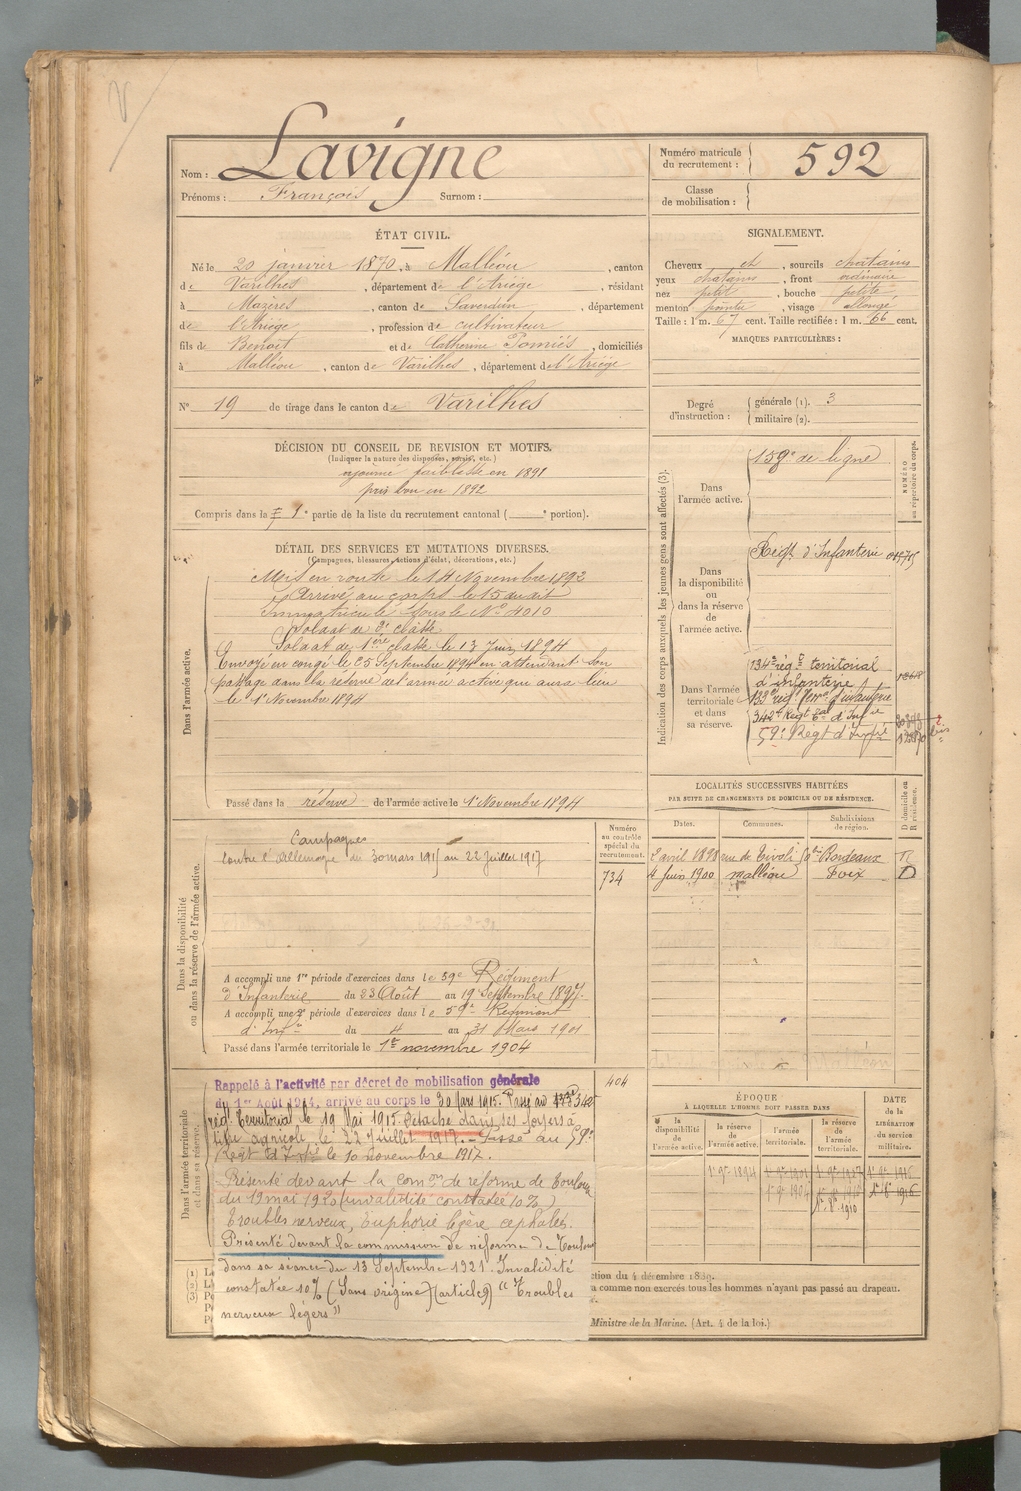 Nom : Lavigne
Prénoms : François Surnom :
Numéro matricule du recrutement : 592
Classe de mobilisation :
ÉTAT CIVIL.
Né le 20 janvier 1870, à Malléon, canton
de Varilhes, département de l'Ariège, résidant
à Mazères, canton de Saverdun, département
de l'Ariège, profession de cultivateur
fils de Benoit et de Catherine Pomiès, domiciliés
à Malléon, canton de Varilhes, département de l'Ariège
N° 19 de tirage dans le canton de Varilhes
SIGNALEMENT.
Cheveux et, sourcils chatains
yeux chatains, front ordinaire
nez petit, bouche petite
menton pointu, visage allongé
Taille : 1 m. 67 cent. Taille rectifiée : 1 m. 66 cent.
MARQUES PARTICULIÈRES :
Degré d'instruction : générale (1). 3
militaire (2).
DÉCISION DU CONSEIL DE REVISION ET MOTIFS.
(Indiquer la nature des dispenses, sursis, etc.)
ajourné faiblesse en 1891
pris bon en 1892
Compris dans la 1e partie de la liste du recrutement cantonal ( e portion).
DÉTAIL DES SERVICES ET MUTATIONS DIVERSES.
(Campagnes, blessures, actions d'éclat, décorations, etc.)
Dans l'armée active.
Mis en route le 14 Novembre 1892
Arrivé au corps le 15 dudit
Immatriculé sous le N° 4010
Soldat de 2e classe
Soldat de 1ère classe le 13 Juin 1894
Envoyé en congé le 25 Septembre 1894 en attendant son
passage dans la réserve de l'armée active qui aura lieu
le 1er Novembre 1894
Passé dans la réserve de l'armée active le 1er Novembre 1894
Indication des corps auxquels les jeunes gens sont affectés (3).
NUMÉRO au répertoire du corps.
Dans l'armée active.
159e de ligne
Dans la disponibilité ou dans la réserve de l'armée active.
Regt. d'Infanterie
Dans l'armée territoriale et dans sa réserve.
134e rég. territorial
d'infanterie
133e rég. Terr. d'infanterie
342e Regt d'Infie
59e Regt d'Infie
LOCALITÉS SUCCESSIVES HABITÉES
PAR SUITE DE CHANGEMENTS DE DOMICILE OU DE RÉSIDENCE.
Dates. Communes. Subdivisions de région. D domicile ou R résidence.
2 avril 1898 rue de Tivoli Bordeaux R
4 Juin 1900 Malléon Foix D
Dans la disponibilité ou dans la réserve de l'armée active.
Numéro au contrôle spécial du recrutement.
734
Campagnes
Contre l'Allemagne du 30 mars 1915 au 22 Juillet 1917
A accompli une 1re période d'exercices dans le 59e Régiment
d'Infanterie du 23 Août au 19 Septembre 1897.
A accompli une 2e période d'exercices dans le 59e Régiment
d'Infie du 4 au 31 Mars 1901
Passé dans l'armée territoriale le 1er novembre 1904
Dans l'armée territoriale et dans sa réserve.
404
Rappelé à l'activité par décret de mobilisation générale
du 1er Août 1914, arrivé au corps le 30 Mars 1915. Passé au 342e
rég. Territorial, le 19 Mai 1915. Détaché dans ses foyers à
titre agricole, le 22 Juillet 1917. Passé au 59e
Regt d'Infie le 10 novembre 1917.
Présenté devant la Comon de réforme de Toulouse
du 12 mai 1920 (invalidité constatée 10%)
Troubles nerveux, Euphorie légère, cephalés.
Présenté devant la commission de réforme de Toulouse
dans sa séance du 13 Septembre 1921 Invalidité
constatée 10% (Sans origine) (article 9) "Troubles
nerveux légers"
ÉPOQUE
À LAQUELLE L'HOMME DOIT PASSER DANS
DATE de la LIBÉRATION du service militaire.
la disponibilité de l'armée active. la réserve de l'armée active. l'armée territoriale. la réserve de l'armée territoriale.
1er 9bre 1894
1er 9bre 1904
1er 8bre 1910
ction du 4 décembre 1889.
a comme non exercés tous les hommes n'ayant pas passé au drapeau.
Ministre de la Marine. (Art. 4 de la loi.)